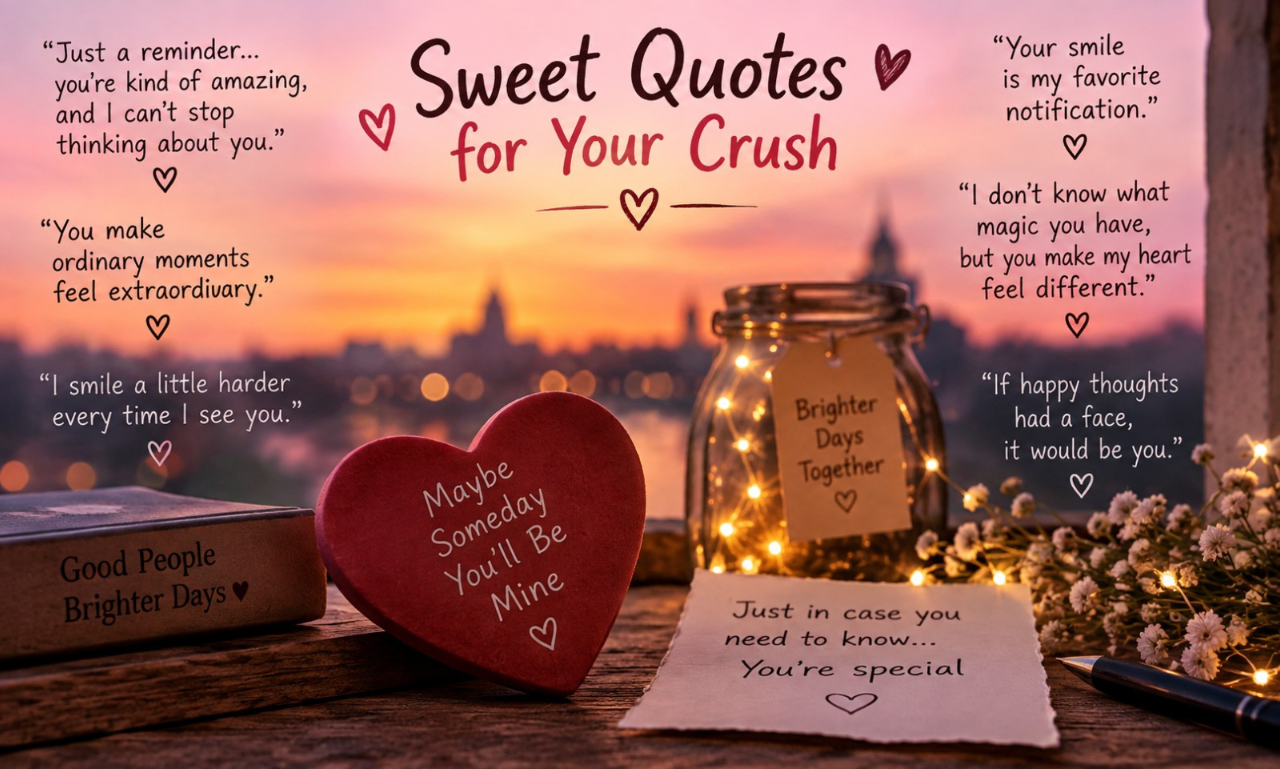 Sweet Quotes
for Your Crush
“Just a reminder...
you're kind of amazing,
and I can't stop
thinking about you.”
“You make
ordinary moments
feel extraordivary.”
“I smile a little harder
every time I see you.”
“Your smile
is my favorite
notification.”
“I don't know what
magic you have,
but you make my heart
feel different.”
“If happy thoughts
had a face,
it would be you.”
Good People
Brighter Days ♥
Maybe
Someday
You'll Be
Mine
Brighter
Days
Together
Just in case you
need to know...
You're special